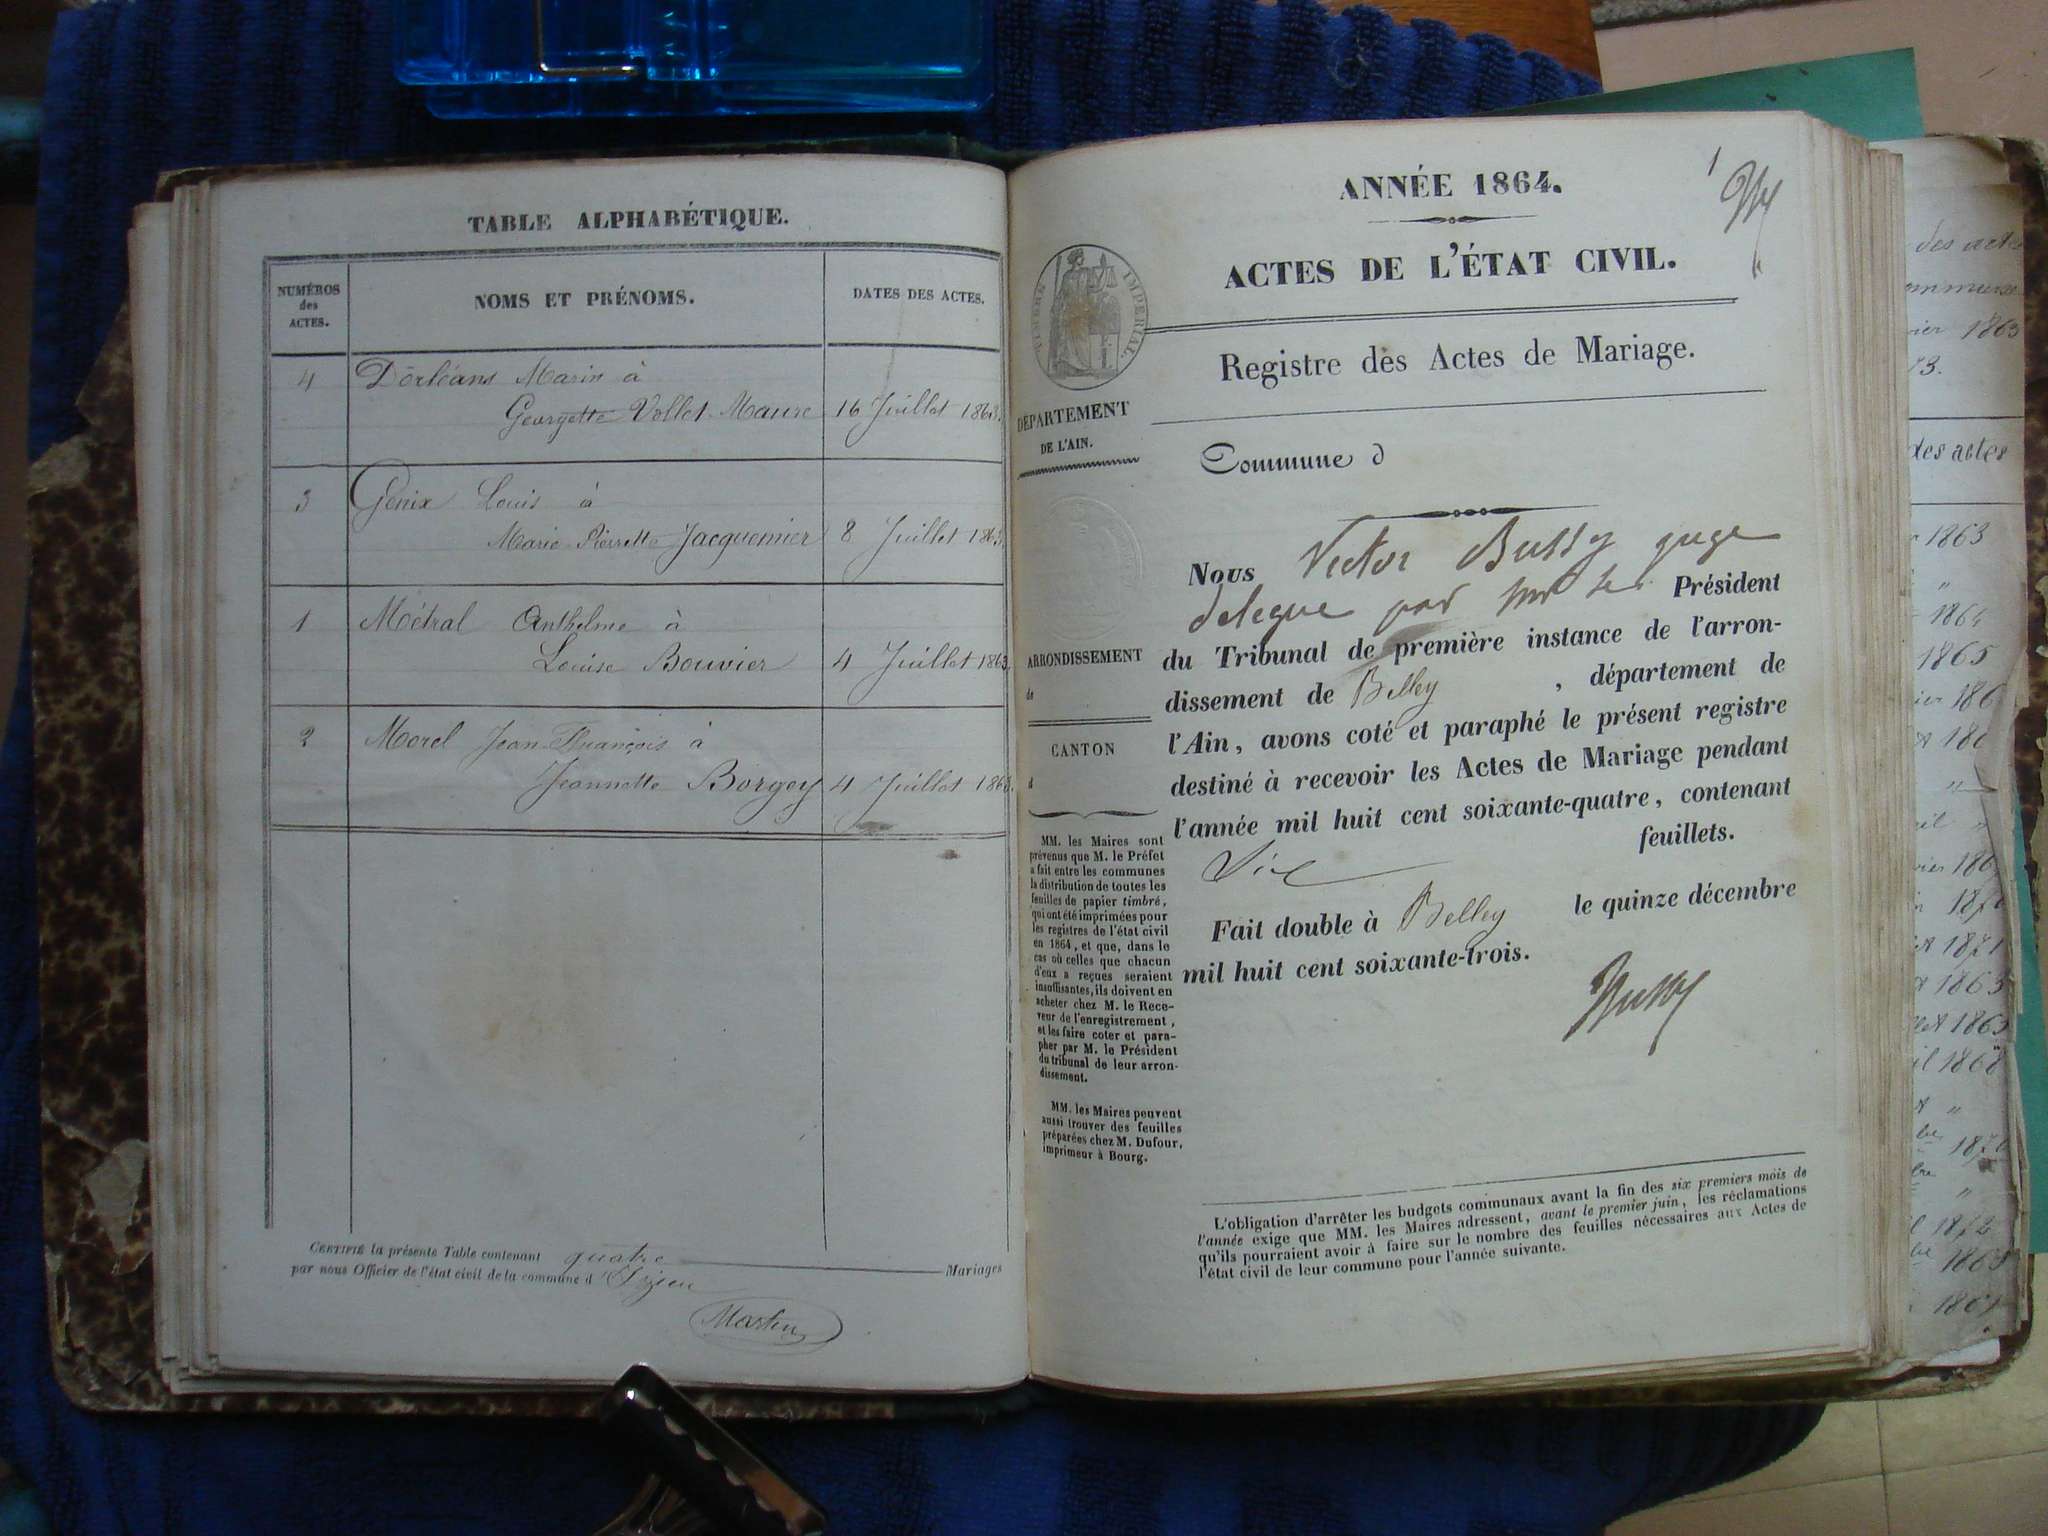 TABLE ALPHABÉTIQUE.
NUMÉROS
des
ACTES.
NOMS ET PRÉNOMS.
DATES DES ACTES.
4 Dorléans Marin à
Georgette Vollet-Maure 16 Juillet 1863.
3 Génix Louis à
Marie Pierrette Jacquemier 8 Juillet 1863.
1 Métral Anthelme à
Louise Bouvier 4 Juillet 1863.
2 Morel Jean-François à
Jeannette Borgey 4 Juillet 1863.
CERTIFIÉ la présente Table contenant quatre Mariages
par nous Officier de l'état civil de la commune d'Izieu
Martin
1
ANNÉE 1864.
ACTES DE L'ÉTAT CIVIL.
TIMBRE IMPERIAL.
Registre des Actes de Mariage.
DÉPARTEMENT
DE L'AIN.
Commune d
ARRONDISSEMENT
de
CANTON
d
MM. les Maires sont
prévenus que M. le Préfet
a fait entre les communes
la distribution de toutes les
feuilles de papier timbré,
qui ont été imprimées pour
les registres de l'état civil
en 1864, et que, dans le
cas où celles que chacun
d'eux a reçues seraient
insuffisantes, ils doivent en
acheter chez M. le Rece-
veur de l'enregistrement,
et les faire coter et para-
pher par M. le Président
du tribunal de leur arron-
dissement.
MM. les Maires peuvent
aussi trouver des feuilles
préparées chez M. Dufour,
imprimeur à Bourg.
Nous Victor Bussy juge
delegue par Mr le Président
du Tribunal de première instance de l'arron-
dissement de Belley, département de
l'Ain, avons coté et paraphé le présent registre
destiné à recevoir les Actes de Mariage pendant
l'année mil huit cent soixante-quatre, contenant
Six feuillets.
Fait double à Belley le quinze décembre
mil huit cent soixante-trois.
Bussy
L'obligation d'arrêter les budgets communaux avant la fin des six premiers mois de
l'année exige que MM. les Maires adressent, avant le premier juin, les réclamations
qu'ils pourraient avoir à faire sur le nombre des feuilles nécessaires aux Actes de
l'état civil de leur commune pour l'année suivante.
des actes
1863
des actes
1863
"
1864
1865
"
1871
1863
"
1872